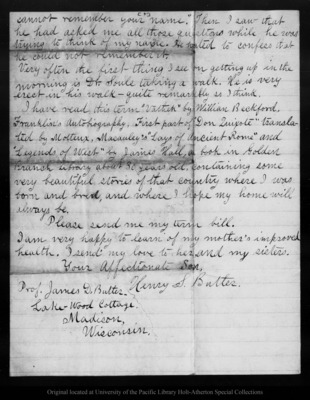 cannot remember your name." Then I saw that
he had asked me all those questions while he was
trying to think of my name. He hated to confess that
he could not remember it.
Very often the first thing I see on getting up in the
morning is Dr. Soule taking a walk. He is very
erect in his walk - quite remarkably so I think.
I have read this term "Vathek" by William Beckford,
Franklin's Autobiography, First part of "Don Quixote" transla-
ted by Motteux, Macauley's "Lays of Ancient Rome" and
"Legends of West" by James Hall, a book in Golden
Branch library about 50 years old, containing some
very beautiful stories of that country where I was
born and bred, and where I hope my home will
always be.
Please send me my term bill.
I am very happy to learn of my mother's improved
health. I send my love to her and my sisters.
Your Affectionate Son,
Henry S. Butler.
Prof. James D. Butler.
Lake-Wood Cottage.
Madison,
Wisconsin.
Original located at University of the Pacific Library Holt-Atherton Special Collections